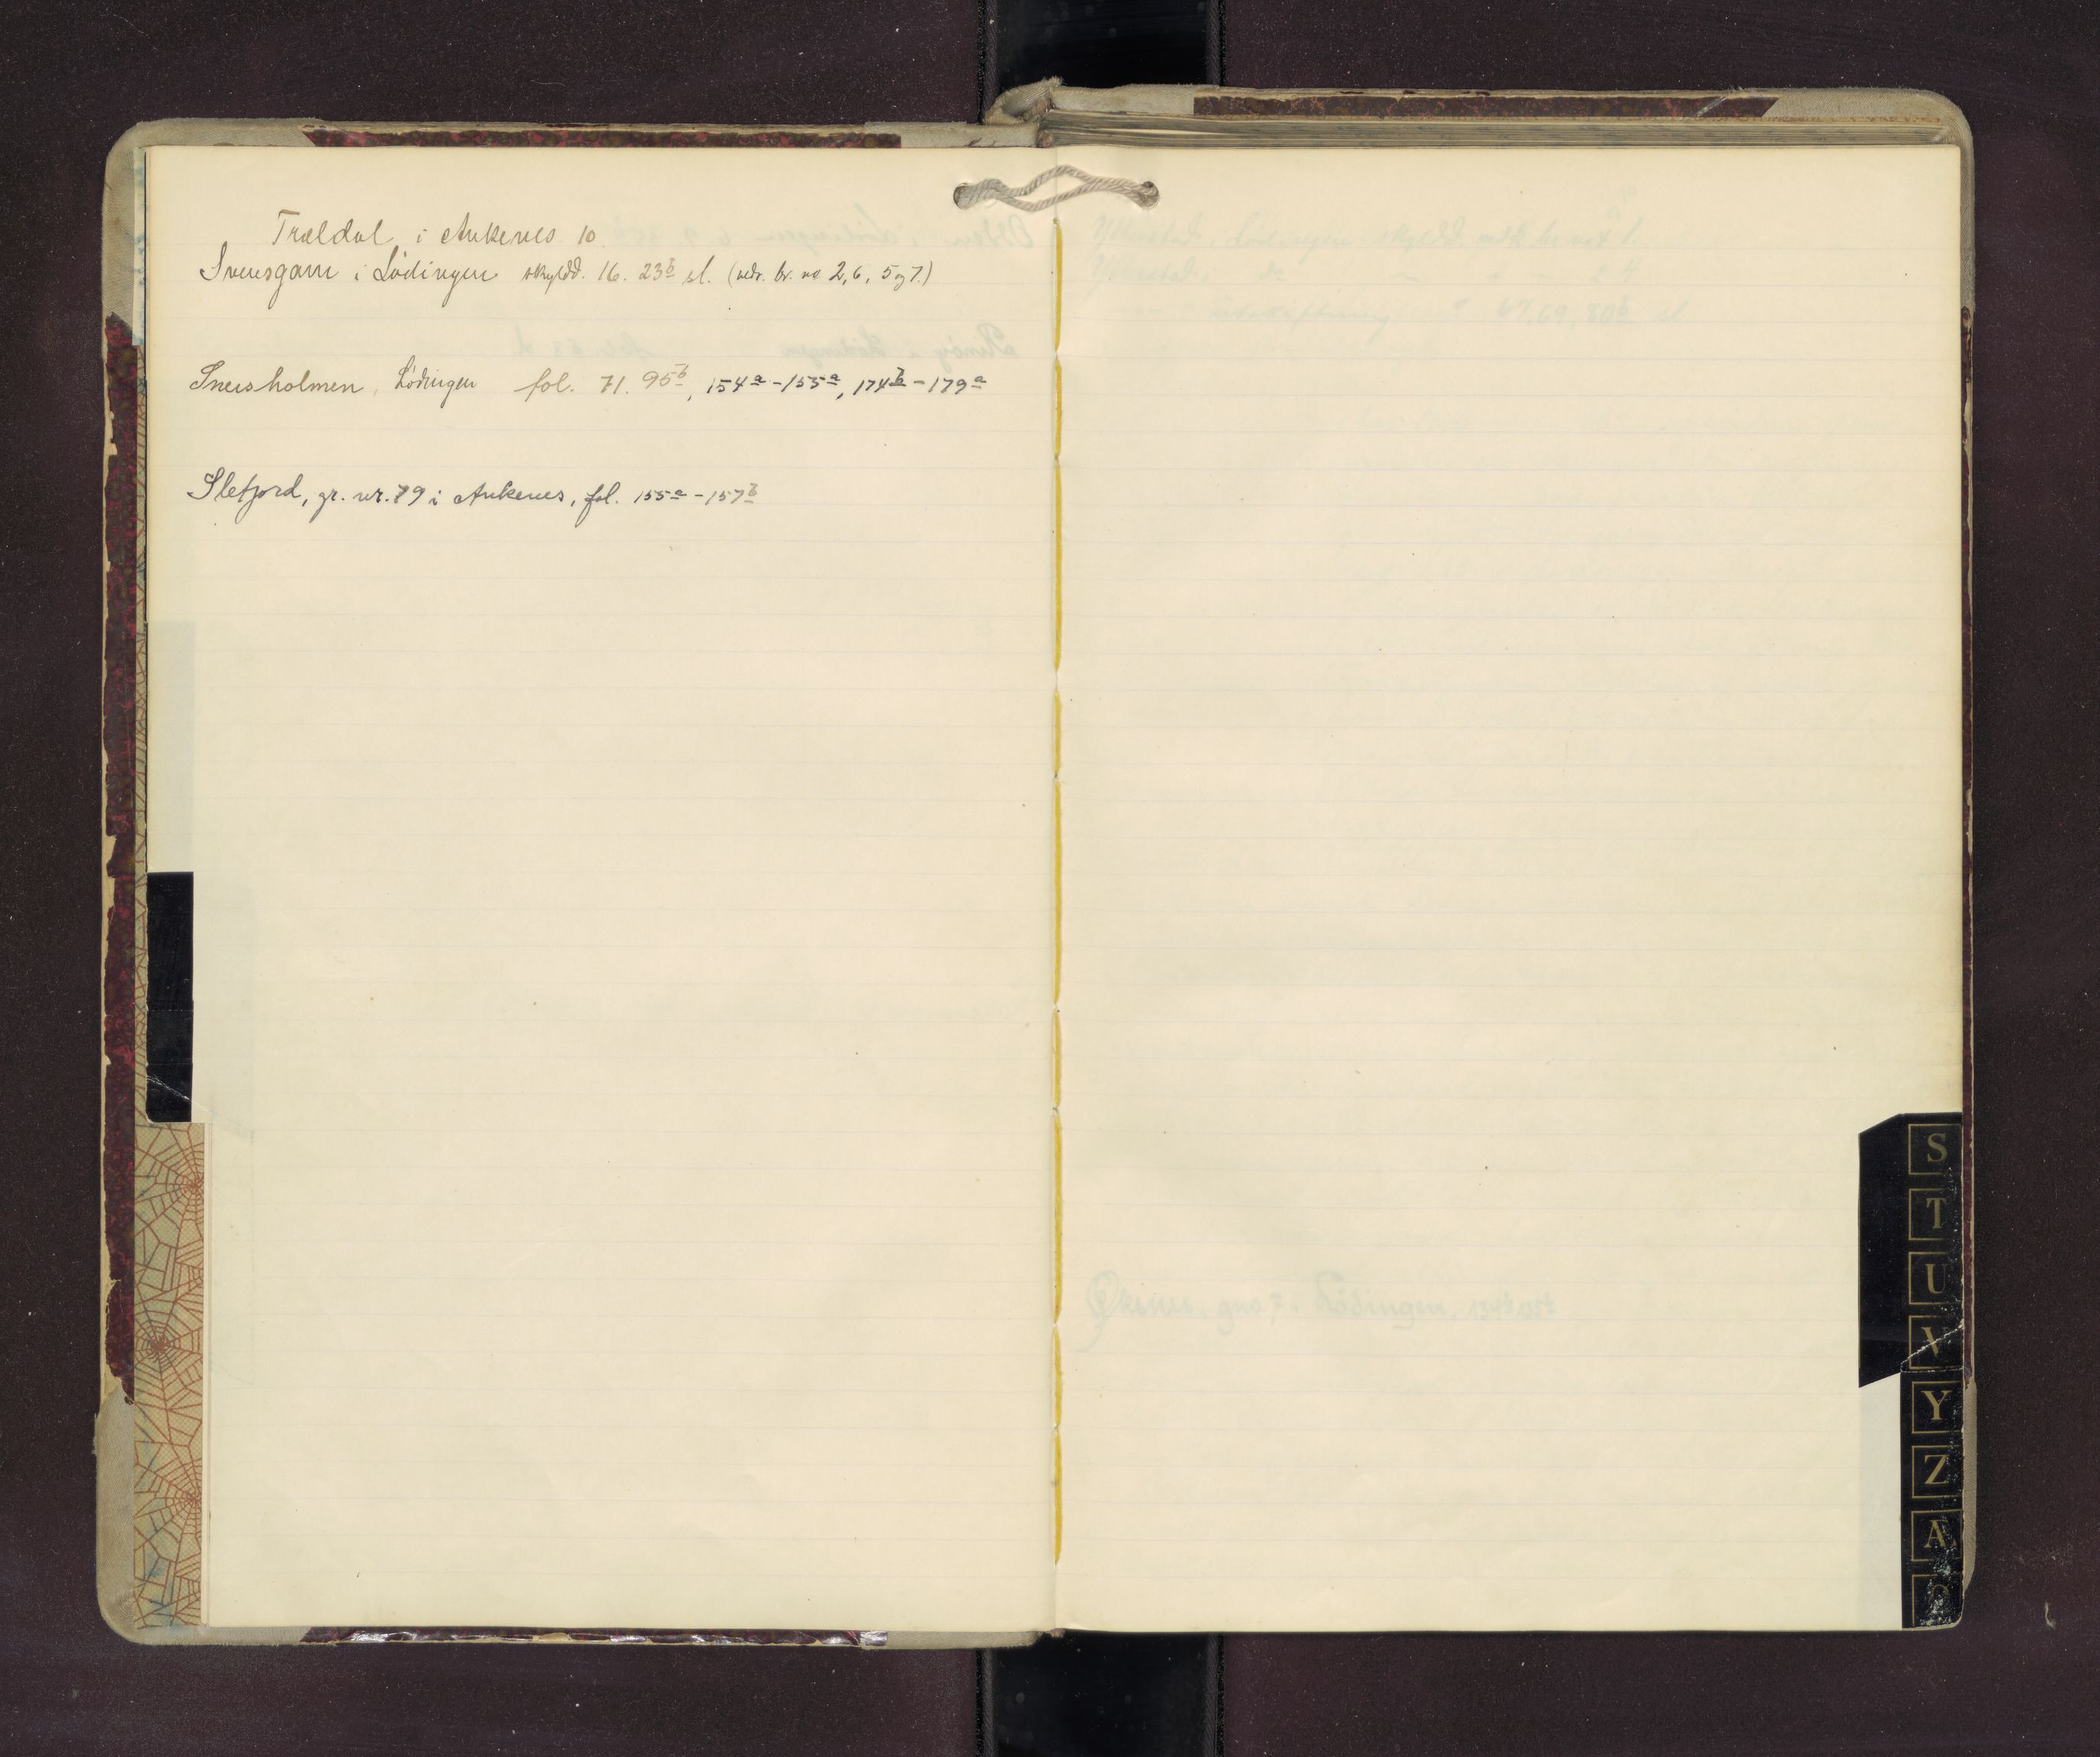 Trældal i Ankenes 10.
Svensgam i Lödingen skyldd. 16. 23b sl. (vedr. br. no 2, 6, 5 og 7.)
Sneisholmen, Lödingen fol. 71. 95b, 154a-155a, 174b-179a
Sletjord, gr. nr. 79 i Ankenes, fol. 155a-157b
S
T
U
V
Y
Z
A